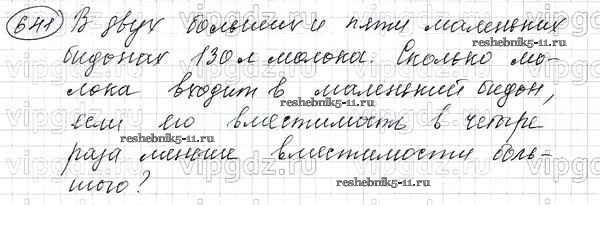 641) В двух больших и пяти маленьких
бидонах 130 л молока. Сколько мо-
лока входит в маленький бидон,
если его вместимость в четыре
раза меньше вместимости боль-
шого?
reshebnik5-11.ru
reshebnik5-11.ru
reshebnik5-11.ru
reshebnik5-11.ru
reshebnik5-11.ru
vipgdz.ru